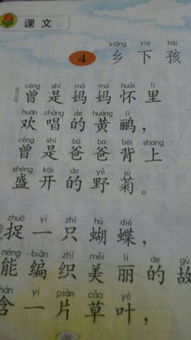 课文
xiāng xià hái
4 乡下孩
céng shì mā ma huái lǐ
曾是妈妈怀里
huān chàng de huáng lí
欢唱的黄鹂，
céng shì bà ba bèi shang
曾是爸爸背上
shèng kāi de yě jú
盛开的野菊。
zhuō yì zhī hú dié
捉一只蝴蝶，
néng biān zhī měi lì de gù
能编织美丽的故
hán yí piàn cǎo yè
含一片草叶，